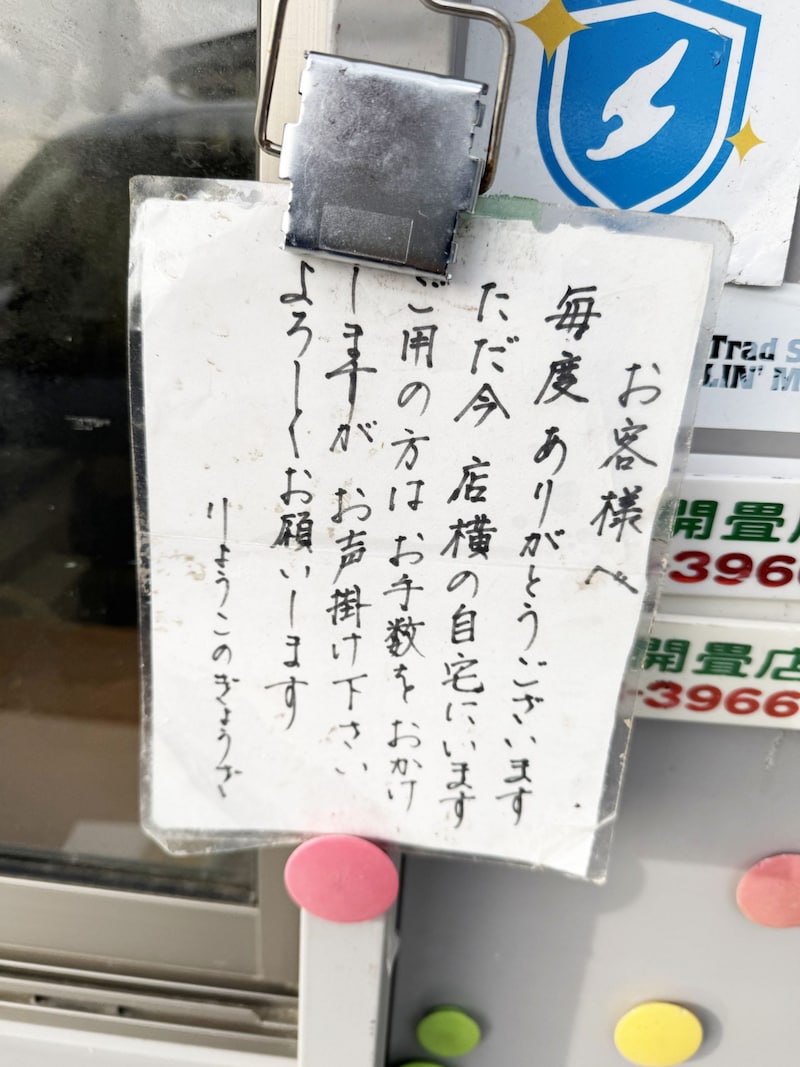 お客様へ
毎度ありがとうございます
ただ今 店横の自宅にいます
ご用の方はお手数をおかけ
しますが お声掛け下さい
よろしくお願いします
りょうこのぎょうざ
Trad S
LIN' M
開畳店
-3966
開畳店
-3966